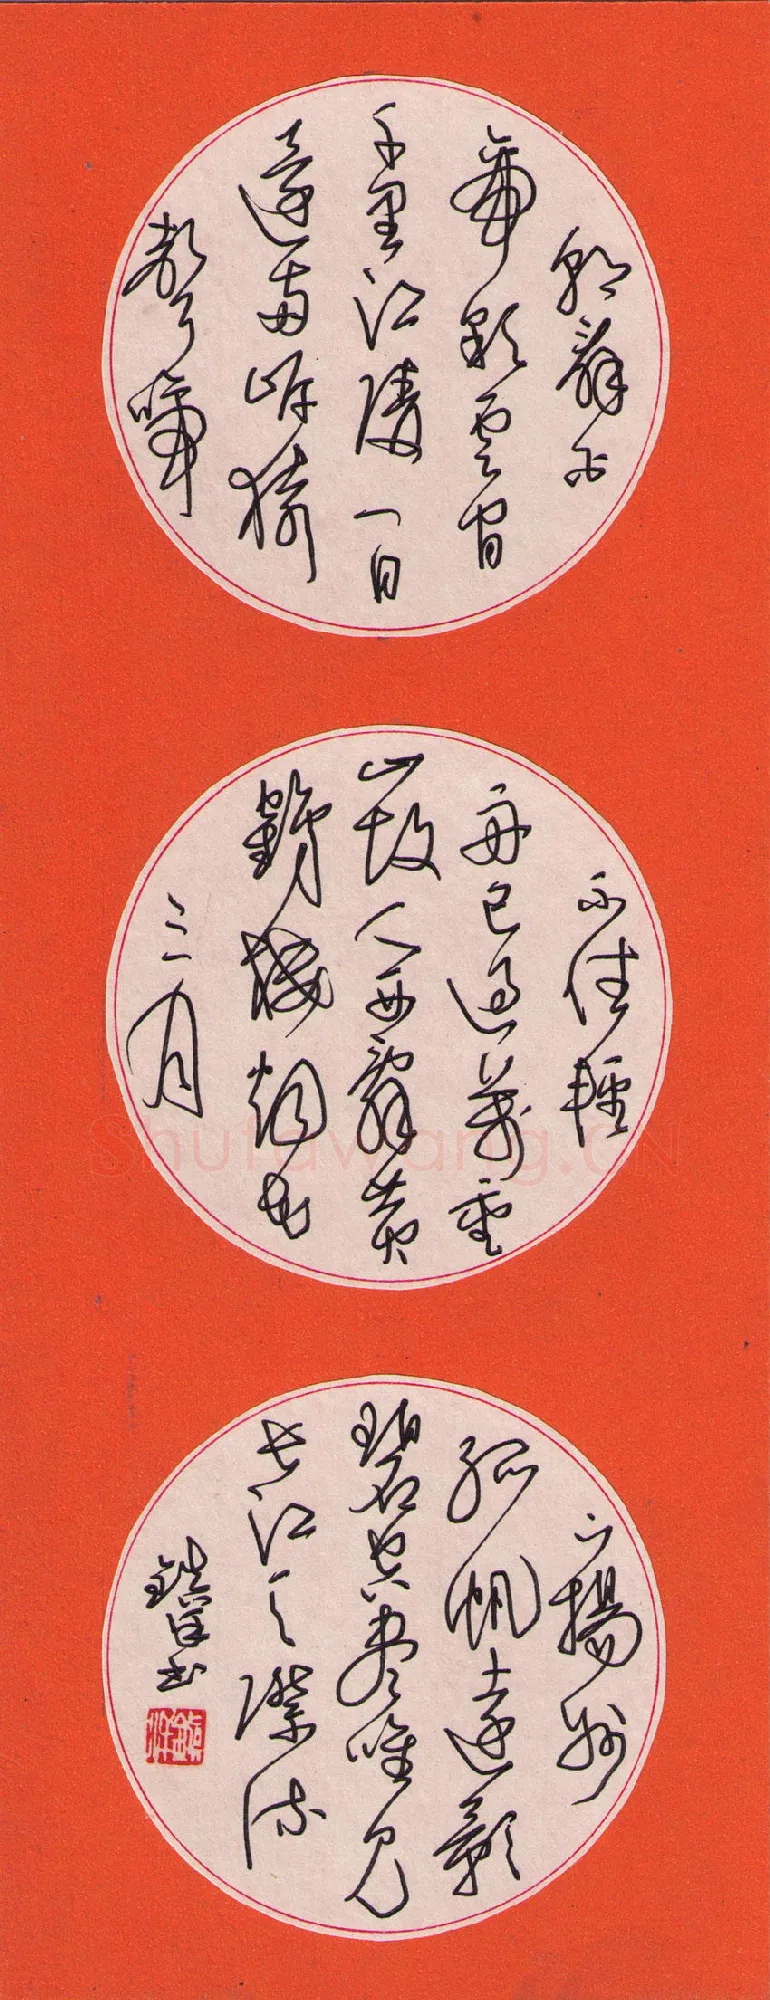 朝辭白
帝彩雲間
千里江陵一日
還兩岸猿
聲啼
不住輕
舟已過萬重
山故人西辭黃
鶴樓烟花
三月
下揚州
孤帆遠影
碧空盡唯見
長江天際流
書
Shufawang.CN